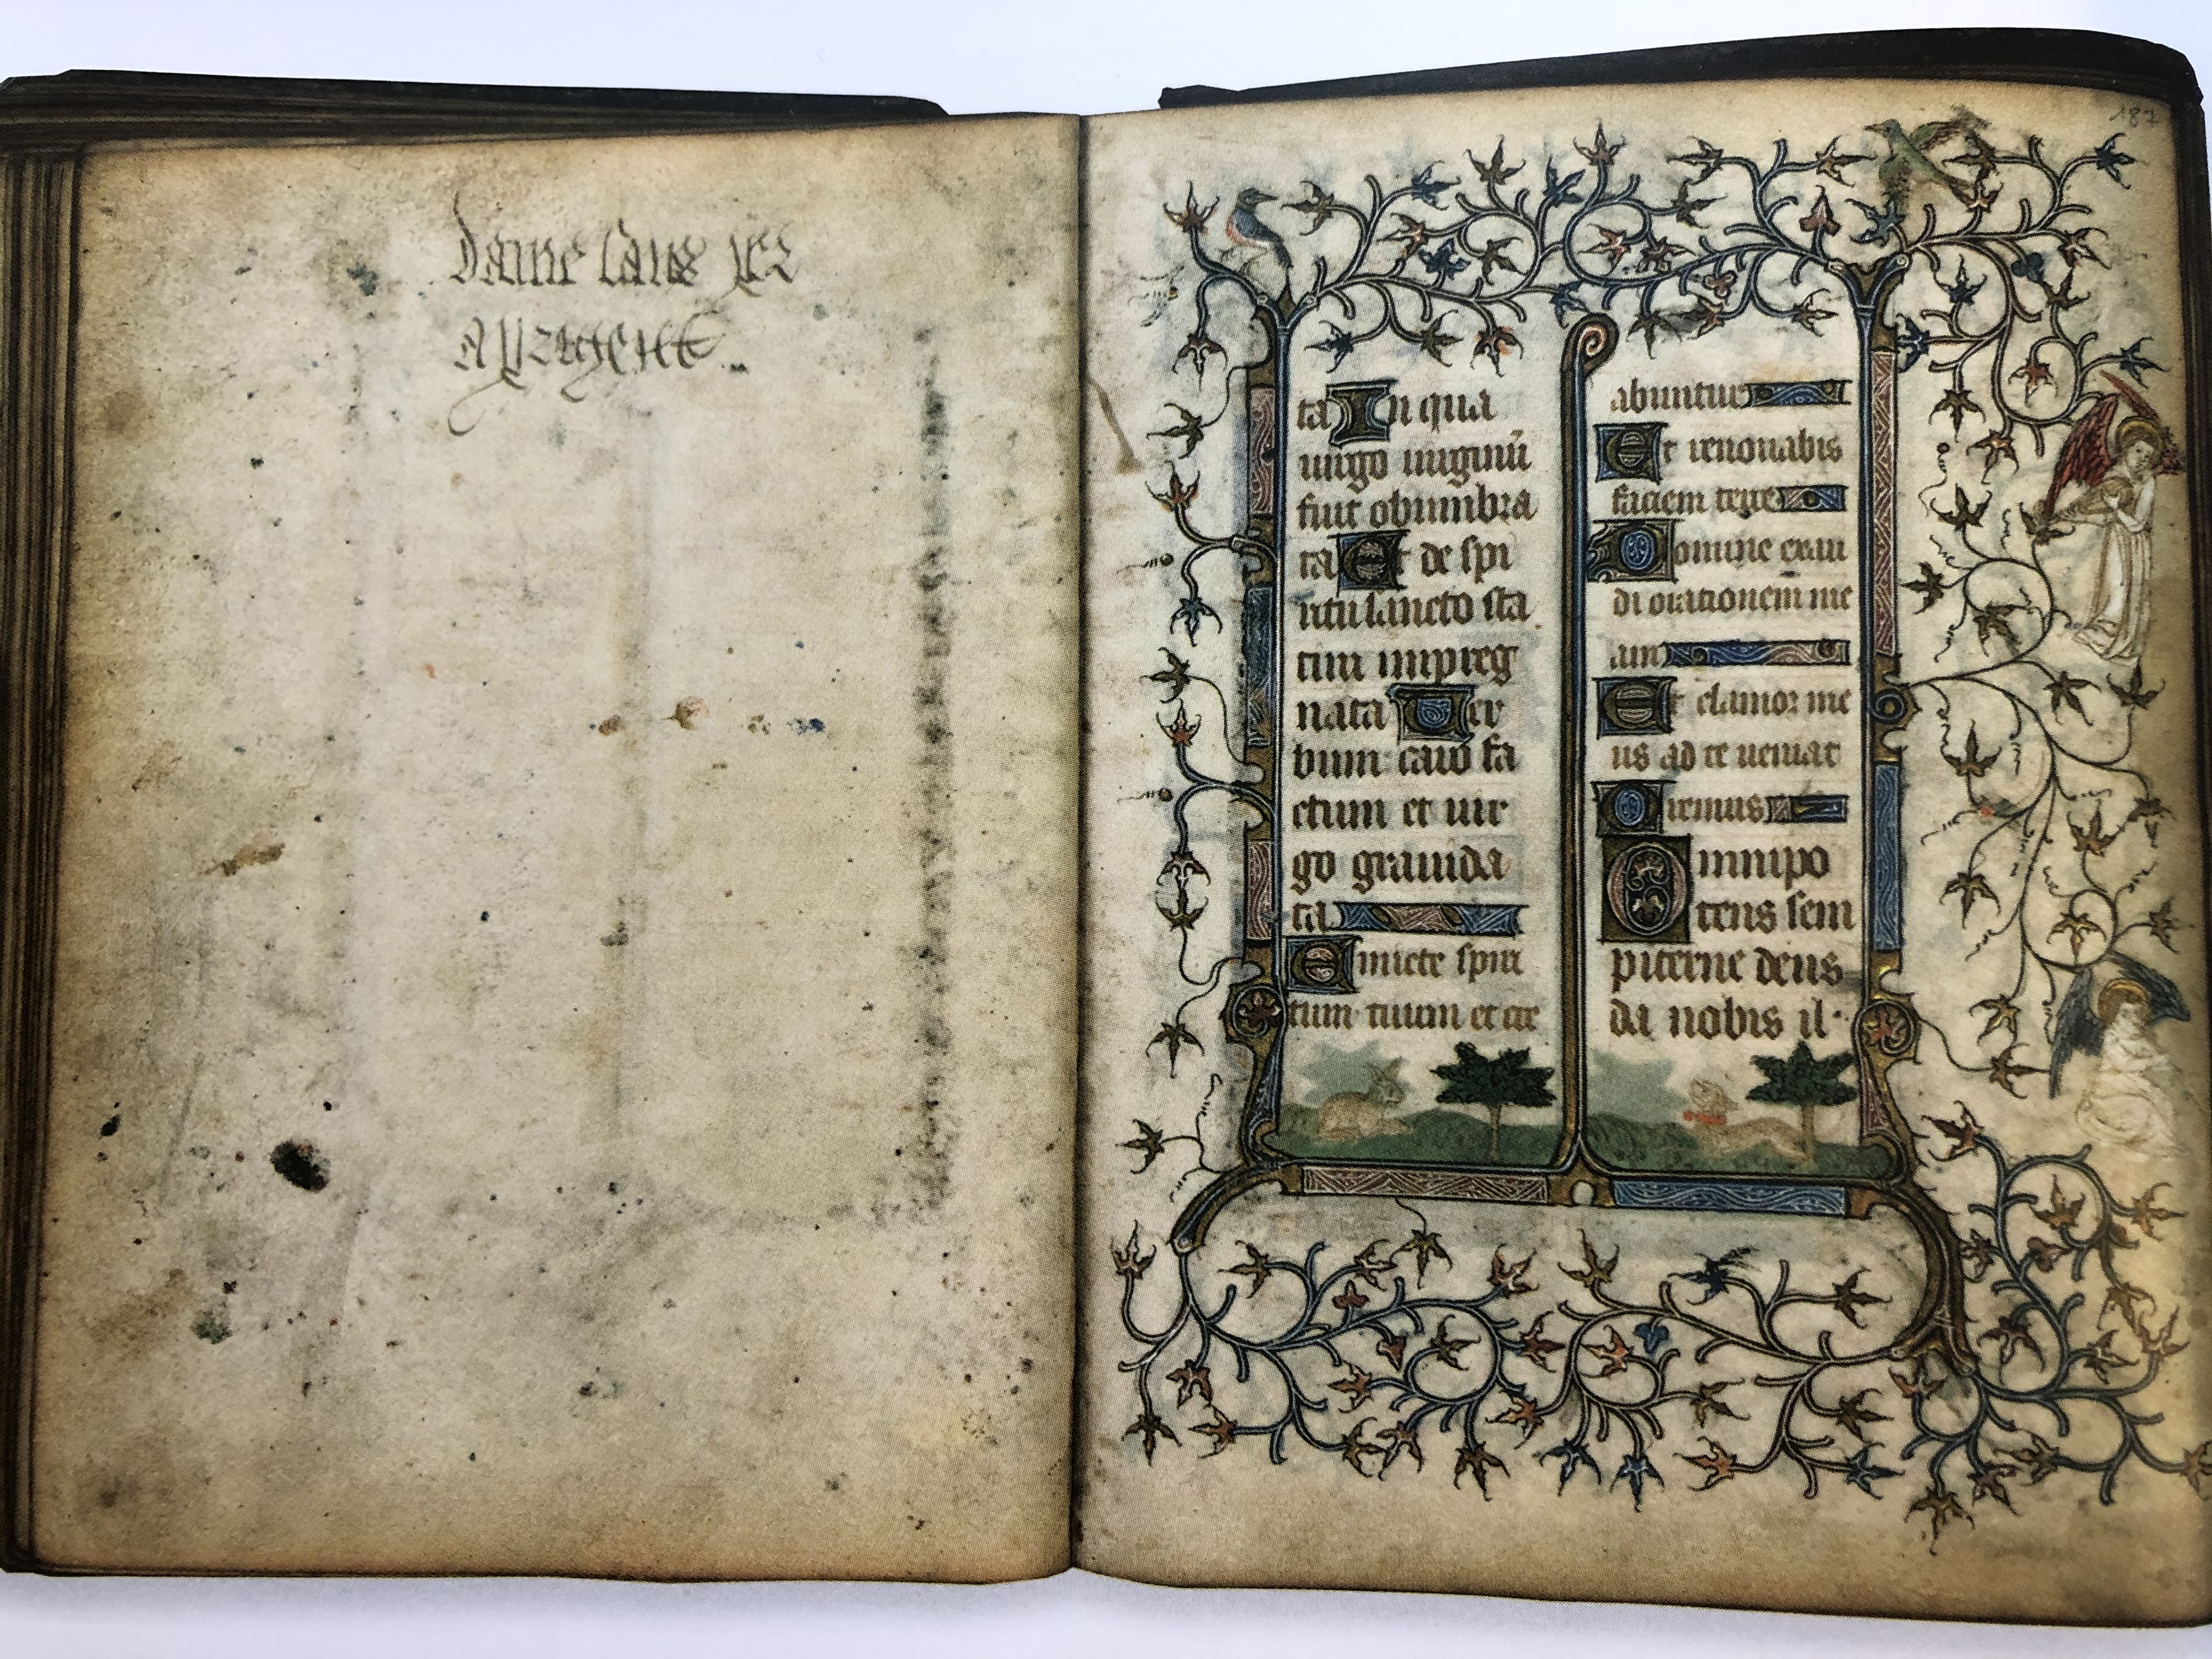 dame sans per
187
ta In qua
uirgo uirginū
fuit obumbra
ta Et de spi
ritu sancto sta
tim impreg
nata Uer
bum caro fa
ctum et uir
go grauida
ta
Emicte spiri
tum tuum et cre
abuntur
Et renouabis
faciem terre
Domine exau
di orationem me
am
Et clamor me
us ad te ueniat
Oremus
Omnipo
tens sem
piterne deus
da nobis il